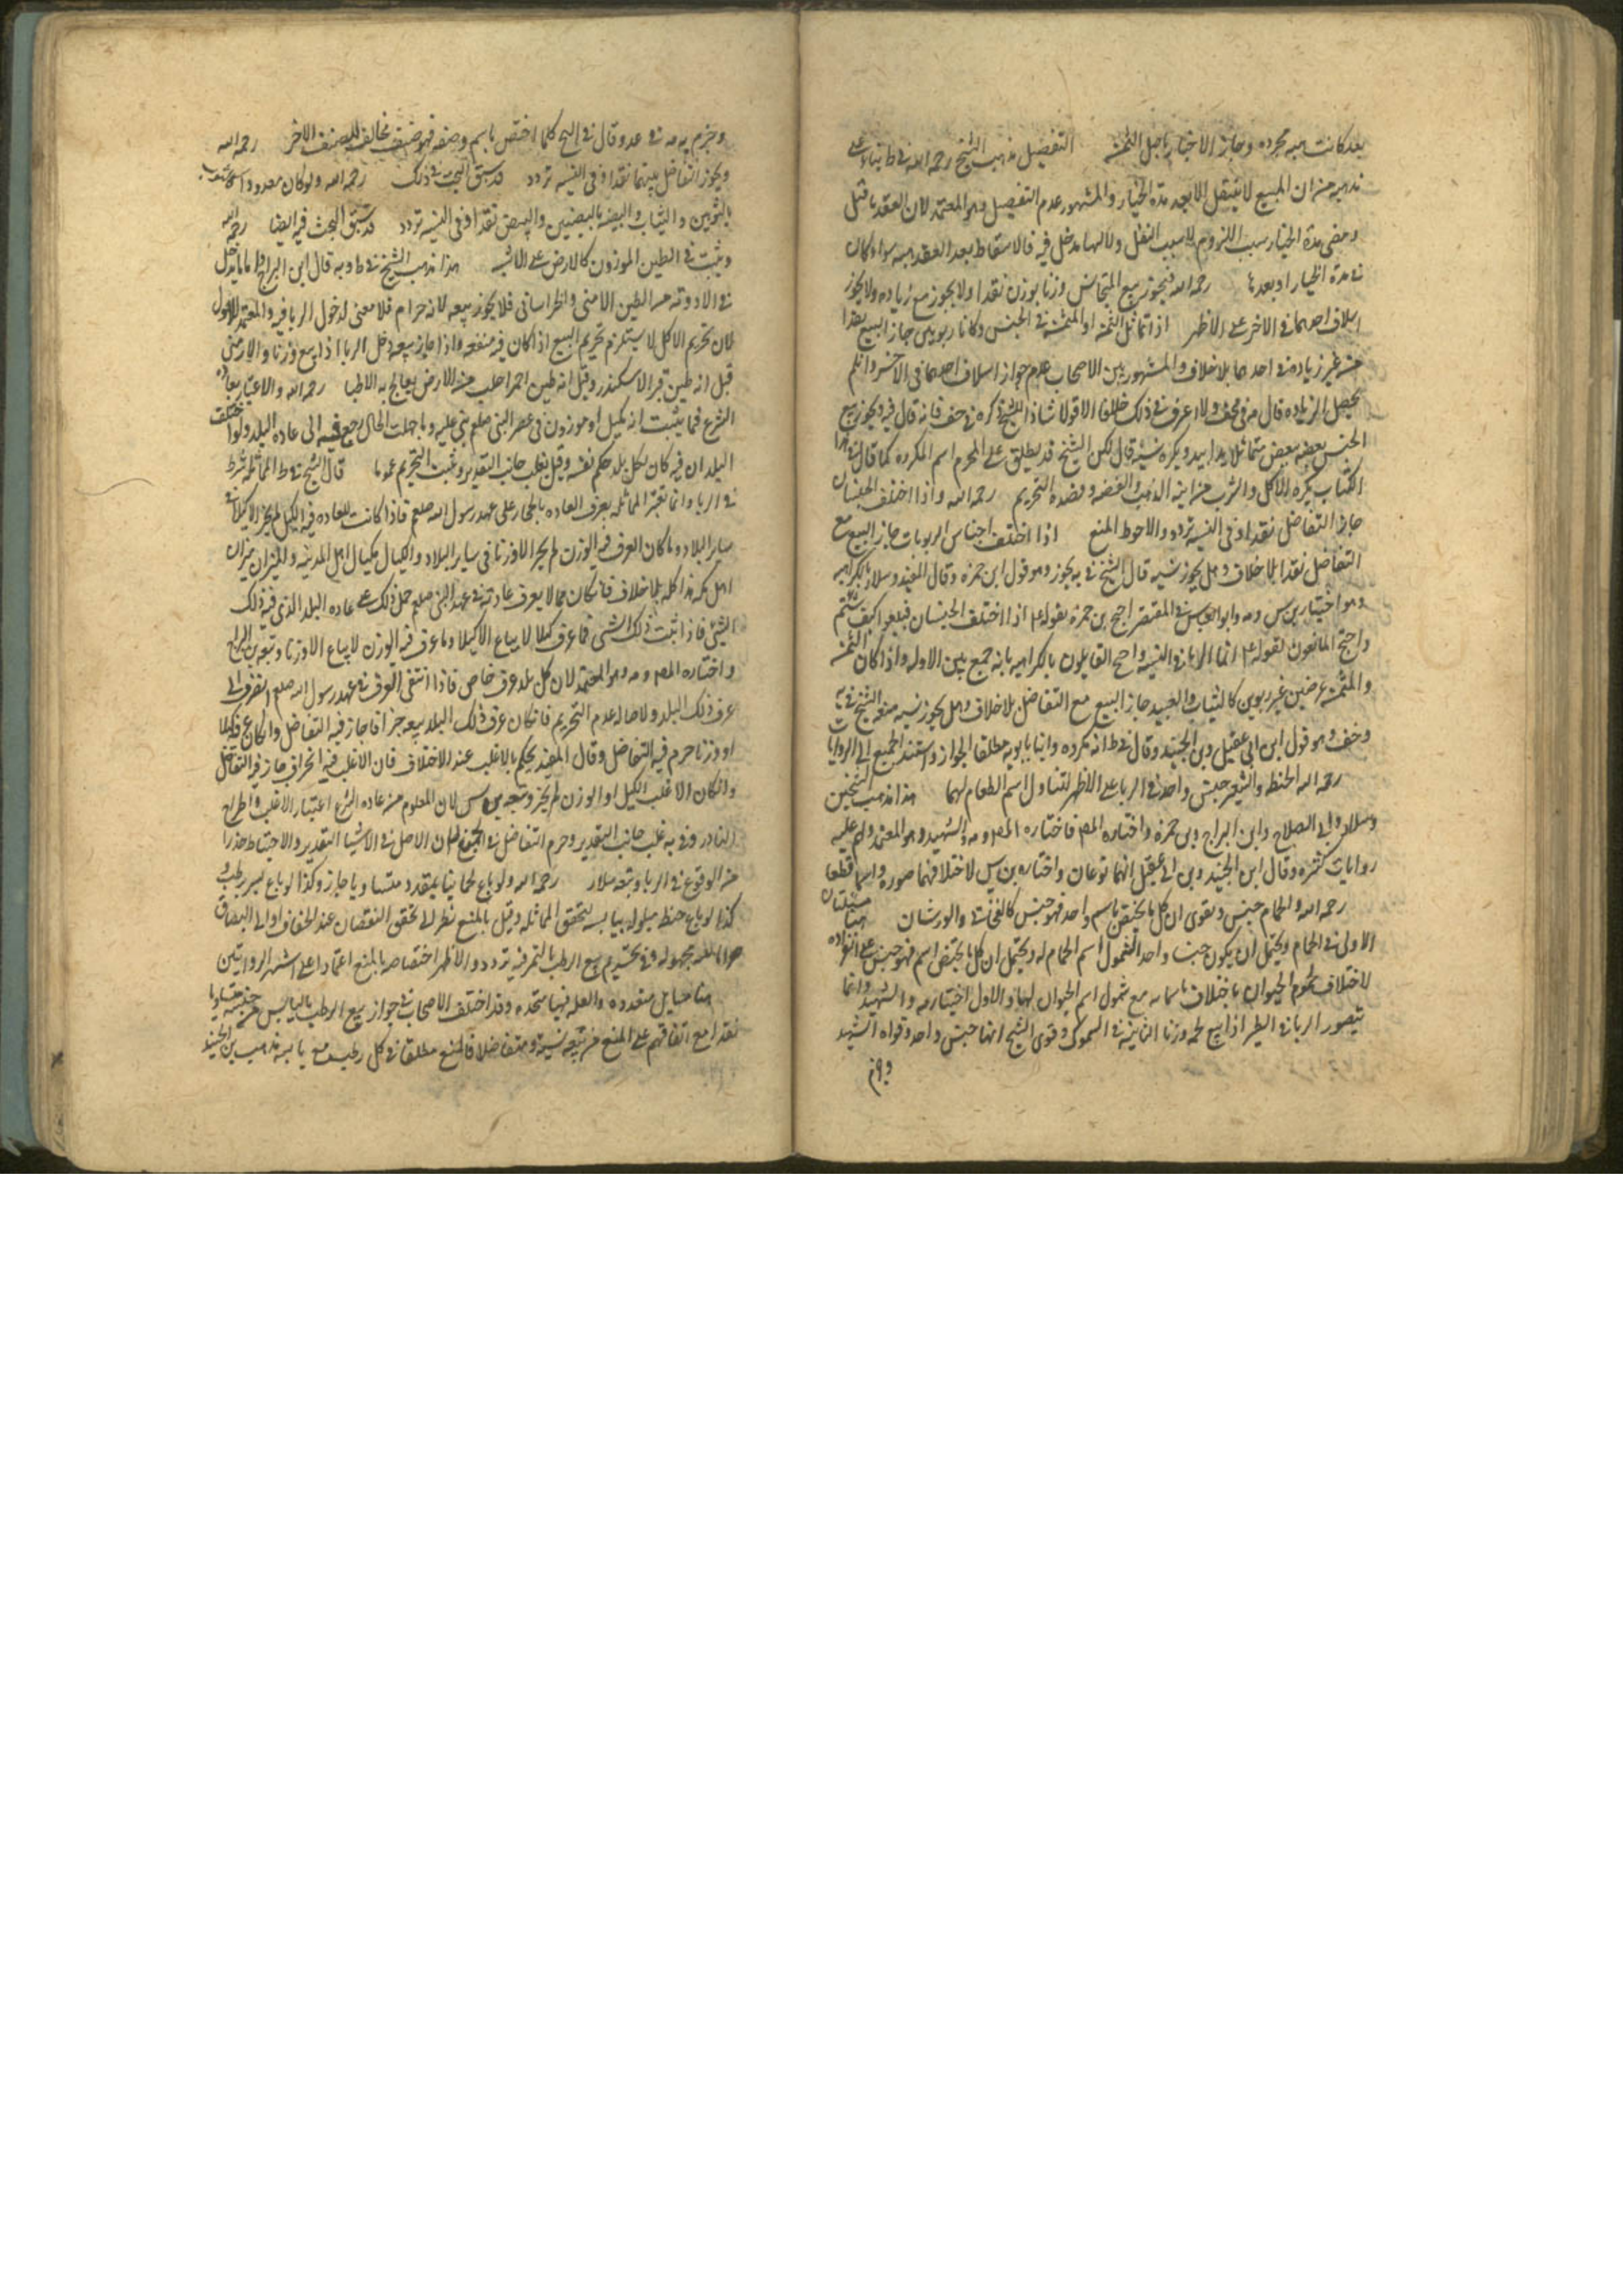 بعد كانت هبه مجرده وجاز الاخبار باصل الثمن التفصيل مذهب الشيخ رحمه الله في ط بناء على
مذهبه من ان المبيع لا ينتقل الا بعد مدة الخيار والمشهور عدم التفصيل وهو المعتمد لان العقد ناقل
ومضى مدة الخيار سبب اللزوم لا سبب النقل ولا لهما مدخل فيه فالاسقاط بعد العقد هبه سواء كان
في مدة الخيار او بعدها رحمه الله فيجوز بيع المتجانس وزنا بوزن نقدا ولا يجوز مع زياده ولا يجوز
اسلاف احدهما في الاخر على الاظهر اذا تماثل الثمن والمثمن في الجنس وكانا ربويين جاز البيع نقدا
من غير زياده في احدهما بلا خلاف والمشهور بين الاصحاب عدم جواز اسلاف احدهما في الاخر وان لم
يحصل الزياده قال في لف ولا اعرف في ذلك خلافا الا قولا شاذا للشيخ ذكره في ف فانه قال فيه ويجوز بيع
الجنس بعضه ببعض متماثلا يدا بيد ويكره نسيئة قال لكن الشيخ قد يطلق على المحرم اسم المكروه كما قال في هذا
الكتاب يكره الاكل والشرب من انيه الذهب والفضه وقصده التحريم رحمه الله واذا اختلف الجنسان
جاز التفاضل نقدا وفي النسيه تردد والاحوط المنع اذا اختلف اجناس الربويات جاز البيع مع
التفاضل نقدا بلا خلاف وهل يجوز نسيه قال الشيخ في يه يجوز وهو قول ابن حمزه وقال المفيد وسلار بالكراهيه
وهو اختيار بن س ومه وابو العباس في المقتصر احتج بن حمزه بقوله ع اذا اختلف الجنسان فبيعوا كيف شئتم
واحتج المانعون بقوله ع انما الربا في النسيه واحتج القايلون بالكراهيه بانه جمع بين الادله واذا كان الثمن
والمثمن عرضين غير ربويين كالثياب والعبيد جاز البيع مع التفاضل بلا خلاف وهل يجوز نسيه منعه الشيخ في يه
وخف وهو قول ابن ابي عقيل وبن الجنيد وقال في ط انه مكروه وابنا بابويه مطلقا الجواز واستند الجميع الى الروايات
رحمه الله الحنطه والشعير جنس واحد في الربا على الاظهر لتناول اسم الطعام لهما هذا مذهب الشيخين
وسلار وابي الصلاح وابن البراج وبن حمزه واختاره المص فاختاره المص ومه والشهيد وهو المعتمد وعليه
روايات كثيره وقال ابن الجنيد وبن ابي عقيل انهما نوعان واختاره بن س لاختلافهما صوره واسما قطعا
رحمه الله والحمام جنس ويقوى ان كل ما يختص باسم واحد فهو جنس كالفخاتي والورشان هنا مسئلتان
الاولى في الحمام ويحتمل ان يكون جنسا واحدا لشمول اسم الحمام له ويحتمل ان كل ما يختص اسم فهو جنس على انفراده
لاختلاف لحوم الحيوان باختلاف اسمائه مع شمول اسم الحيوان لها والاول اختيار مه والشهيد وانما
يتصور الربا في الطير اذا بيع لحمه وزنا الثانيه في السموك وقوى الشيخ انها جنس واحد وقواه الشهيد
وجزم به مه في عد وقال في التح كلما اختص باسم وصنف فهو صنف مخالف للصنف الاخر رحمه الله
ويجوز التفاضل بينهما نقدا وفي النسيه تردد قد سبق البحث في ذلك رحمه الله ولو كان معدودا كالثوب
بالثوبين والثياب والبيضه بالبيضتين والبيض نقدا وفي النسيه تردد قد سبق البحث فيه ايضا رحمه الله
ويثبت في الطين الموزون كالارمني على الاشبه هذا مذهب الشيخ في ط وبه قال ابن البراج واما ما يدخل
في الادويه من الطين الارمني والخراساني فلا يجوز بيعه لانه حرام فلا معنى لدخول الربا فيه والمعتمد الاول
لان تحريم الاكل لا يستلزم تحريم البيع اذا كان فيه منفعه واذا جاز بيعه دخل الربا اذا بيع وزنا والارمني
قيل انه طين قبر الاسكندر وقيل انه طين احمر اجلب من الارض يعالج به الاطبا رحمه الله والاعتبار بعاده
الشرع فما يثبت انه مكيل او موزون في عصر النبي صلعم بني عليه وما جهلت الحال رجع فيه الى عاده البلد ولو اختلف
البلدان فيه كان لكل بلد حكم نفسه وقيل يغلب جانب التقدير ويثبت التحريم عموما قال الشيخ في ط المماثله شرط
في الربا وانما تعتبر المماثله بعرف العاده بالحجاز على عهد رسول الله صلعم فاذا كانت العاده فيه الكيل لم يجز الا كيلا في
ساير البلاد وما كان العرف فيه الوزن لم يجز الا وزنا في ساير البلاد والمكيال مكيال اهل المدينه والميزان ميزان
اهل مكه هذا كله بلا خلاف فان كان مما لا يعرف عادته في عهد النبي صلعم حمل ذلك على عاده البلد الذي فيه ذلك
الشيء فاذا ثبت ذلك الشيء فما عرف كيلا لا يباع الا كيلا وما عرف فيه الوزن لا يباع الا وزنا وتبعه بن البراج
واختاره المص ومه وهو المعتمد لان كل بلد عرف خاص فاذا انتفى العرف في عهد رسول الله صلعم انصرف الى
عرف ذلك البلد ولاصاله عدم التحريم فان كان عرف ذلك البلد بيعه جزافا جاز فيه التفاضل وان كان عرفه كيلا
او وزنا حرم فيه التفاضل وقال المفيد يحكم بالاغلب عند الاختلاف فان الاغلب فيه الجزاف جاز فيه التفاضل
وان كان الاغلب الكيل او الوزن لم يجز وتبعه بن س لان المعلوم من عاده الشرع اعتبار الاغلب واطراح
النادر وفي يه غلب جانب التقدير وحرم التفاضل في الجميع لان الاصل في الاشيا التقدير والاحتياط حذرا
من الوقوع في الربا وتبعه سلار رحمه الله ولو باع لحما نيا بمقدد متساويا جاز وكذا لو باع بسرا برطب و
كذا لو باع حنطه مبلوله بيابسه لتحقق المماثله وقيل بالمنع نظرا الى تحقق النقصان عند الجفاف او الى انضياف
اجزاء مائيه مجهوله وفي تحريم بيع الرطب بالتمر فيه تردد والاظهر اختصاصه بالمنع اعتمادا على اشهر الروايتين
هنا مسايل متعدده والعله فيها متحده وقد اختلف الاصحاب في جواز بيع الرطب باليابس من جنسه متساويا
نقدا مع اتفاقهم على المنع من بيعه نسيئة ومتفاضلا فالمنع مطلقا في كل رطب مع يابسه مذهب بن الجنيد